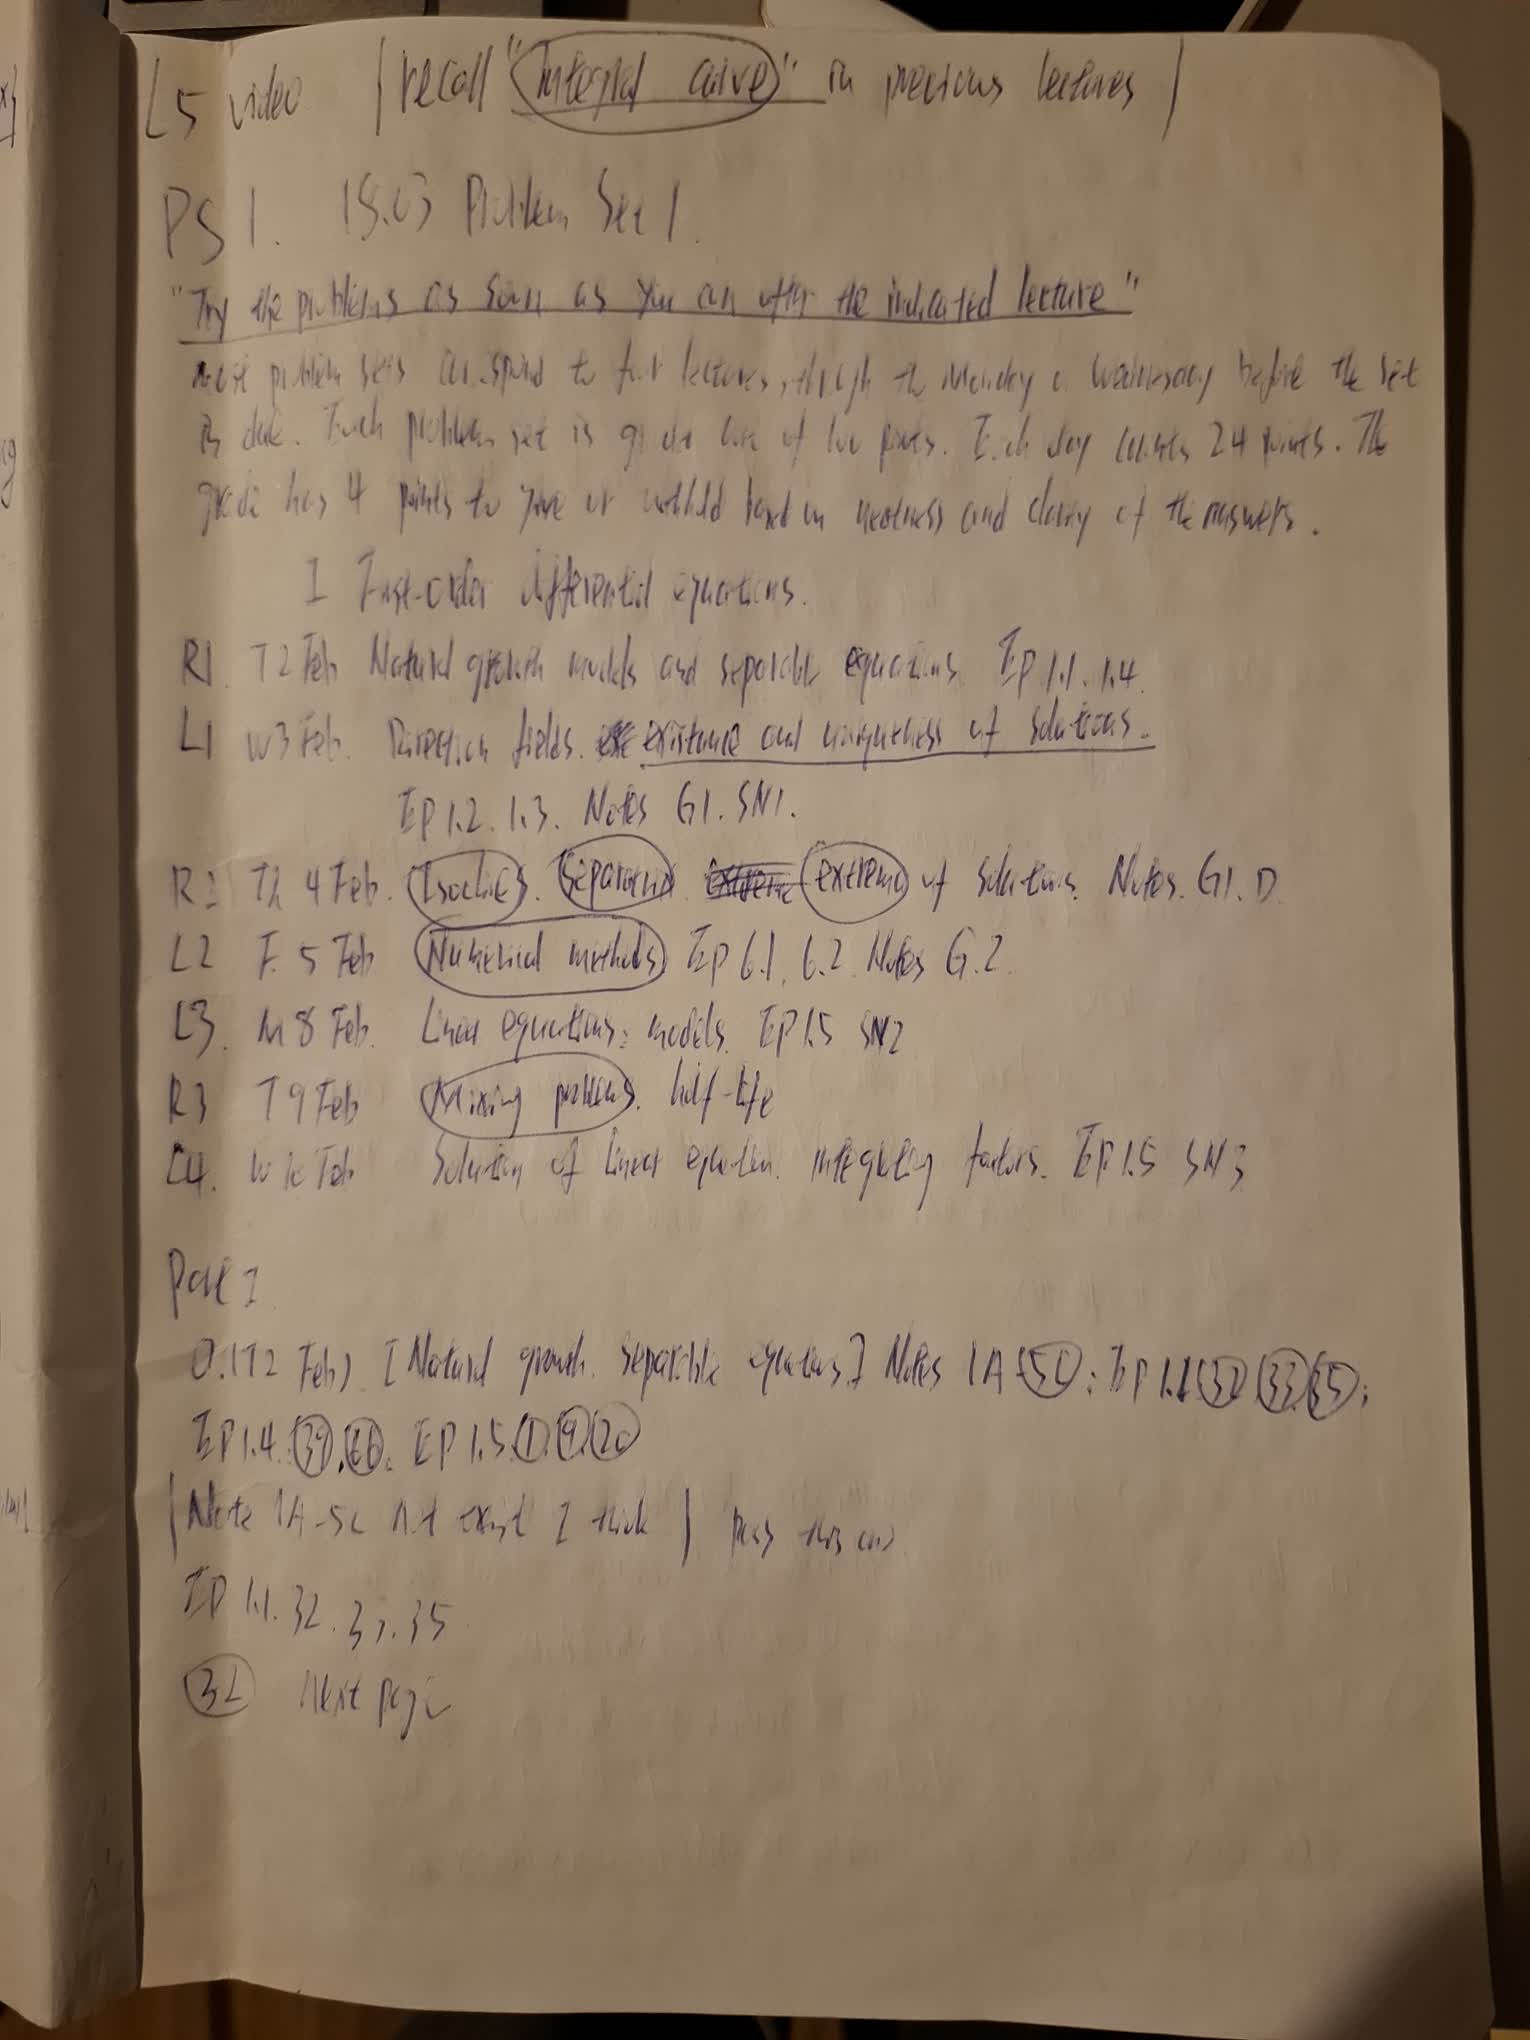 L5 video | recall "Integral curve" in previous lectures |
PS 1. 18.03 Problem Set 1.
"Try the problems as soon as you can after the indicated lecture"
most problem sets correspond to four lectures, through the Monday or Wednesday before the set
is due. Each problem set is graded out of 100 points. Each day counts 24 points. The
grader has 4 points to give or withhold based on neatness and clarity of the answers.
I First-order differential equations.
R1 T 2 Feb Natural growth models and separable equations. EP 1.1. 1.4.
L1 W 3 Feb. Direction fields. existence and uniqueness of solutions.
EP 1.2. 1.3. Notes G1. SN1.
R2 Th 4 Feb. Isoclines. Separatrix. extrema of solutions. Notes. G1. D
L2 F. 5 Feb Numerical methods EP 6.1. 6.2. Notes G.2.
L3. M 8 Feb. Linear equations: models. EP 1.5 SN2
R3 T 9 Feb Mixing problems. half-life
L4. W 10 Feb Solution of linear equation. integrating factors. EP 1.5 SN3
Part I
0. (T2 Feb) [Natural growth. separable equations] Notes 1A-5c; EP 1.1 32 33 35;
EP 1.4. 39. EP 1.5. 1. 9. 20
| Note 1A-5c not exist I think | pass this
EP 1.1. 32. 33. 35
32 Next page